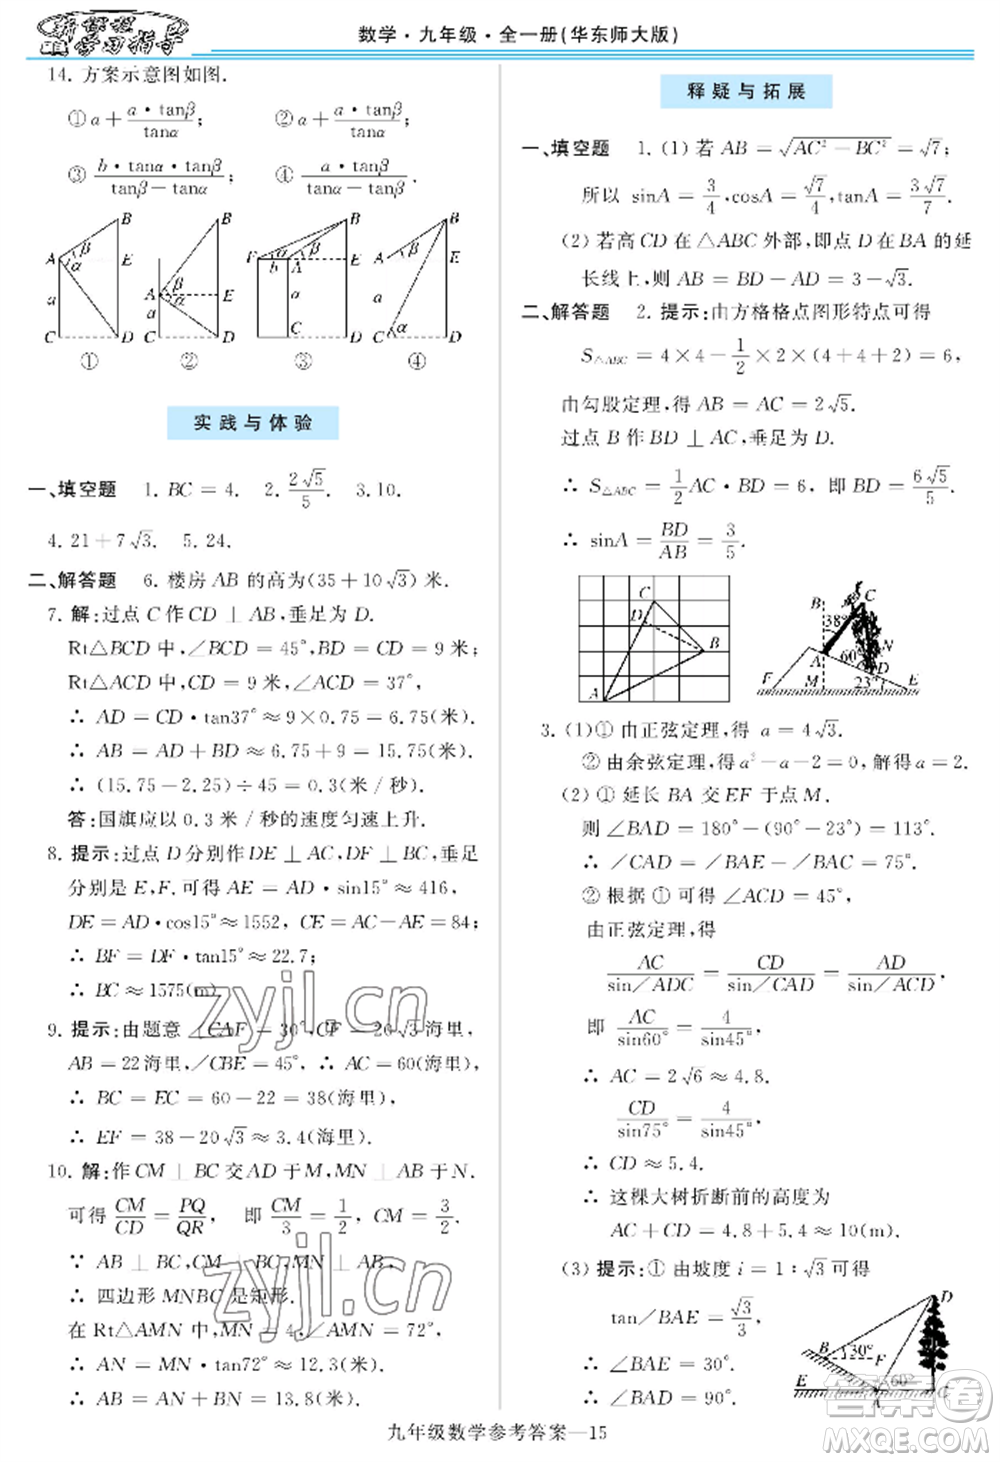 新课程
学习指导
数学·九年级·全一册(华东师大版)
14. 方案示意图如图.
① a+\frac{a·tanβ}{tanα}; ② a+\frac{a·tanβ}{tanα};
③ \frac{b·tanα·tanβ}{tanβ-tanα}; ④ \frac{a·tanβ}{tanβ-tanα}.
B B B B
A β E α a C D
A β α E a C D
F b A β α E a C D
A β E a α C D
① ② ③ ④
实践与体验
一、填空题 1. BC=4. 2. \frac{2√5}{5}. 3. 10.
4. 21+7√3. 5. 24.
二、解答题 6. 楼房 AB 的高为(35+10√3)米.
7. 解:过点 C 作 CD⊥AB,垂足为 D.
Rt△BCD 中,∠BCD=45°,BD=CD=9 米;
Rt△ACD 中,∠ACD=37°,
∴ AD=CD·tan37°≈9×0.75=6.75(米).
∴ AB=AD+BD≈6.75+9=15.75(米).
∴ (15.75-2.25)÷45=0.3(米/秒).
答:国旗应以 0.3 米/秒的速度匀速上升.
8. 提示:过点 D 分别作 DE⊥AC,DF⊥BC,垂足
分别是 E,F.可得 AE=AD·sin15°≈416,
DE=AD·cos15°≈1552, CE=AC-AE=84;
∴ BF=DF·tan15°≈22.7;
∴ BC≈1575(m).
9. 提示:由题意∠CAF=30°,CF=20√3海里,
AB=22海里,∠CBE=45°, ∴ AC=60海里,
∴ BC=EC=60-22=38(海里),
∴ EF=38-20√3≈3.4(海里).
10. 解:作 CM⊥BC 交 AD 于 M,MN⊥AB 于 N.
可得 \frac{CM}{CD}=\frac{PQ}{QR}, 即 \frac{CM}{3}=\frac{1}{2}, CM=\frac{3}{2}.
∵ AB⊥BC,CM⊥BC,MN⊥AB,
∴ 四边形 MNBC 是矩形.
在 Rt△AMN 中,MN=4,∠AMN=72°,
∴ AN=MN·tan72°≈12.3(米).
∴ AB=AN+BN=13.8(米).
释疑与拓展
一、填空题 1. (1) 若 AB=√{AC²-BC²}=√7;
所以 sinA=\frac{3}{4},cosA=\frac{√7}{4},tanA=\frac{3√7}{7}.
(2) 若高 CD 在△ABC外部,即点 D 在 BA 的延
长线上,则 AB=BD-AD=3-√3.
二、解答题 2. 提示:由方格格点图形特点可得
S△ABC=4×4-\frac{1}{2}×2×(4+4+2)=6,
由勾股定理,得 AB=AC=2√5.
过点 B 作 BD⊥AC,垂足为 D.
∴ S△ABC=\frac{1}{2}AC·BD=6, 即 BD=\frac{6√5}{5}.
∴ sinA=\frac{BD}{AB}=\frac{3}{5}.
C D B A
B C 38° N A 60° D F M 23° E
3. (1)① 由正弦定理,得 a=4√3.
② 由余弦定理,得a²-a-2=0,解得a=2.
(2) ① 延长 BA 交 EF 于点 M.
则∠BAD=180°-(90°-23°)=113°.
∴ ∠CAD=∠BAE-∠BAC=75°.
② 根据 ① 可得∠ACD=45°,
由正弦定理,得
\frac{AC}{sin∠ADC}=\frac{CD}{sin∠CAD}=\frac{AD}{sin∠ACD},
即 \frac{AC}{sin60°}=\frac{4}{sin45°},
∴ AC=2√6≈4.8.
\frac{CD}{sin75°}=\frac{4}{sin45°},
∴ CD≈5.4.
∴ 这棵大树折断前的高度为
AC+CD=4.8+5.4≈10(m).
(3) 提示:① 由坡度 i=1:√3可得
tan∠BAE=\frac{√3}{3},
∴ ∠BAE=30°.
∴ ∠BAD=90°.
D B 30° F E 60° C A
九年级数学参考答案—15
zyjl.cn
zyjl.cn
答案圈